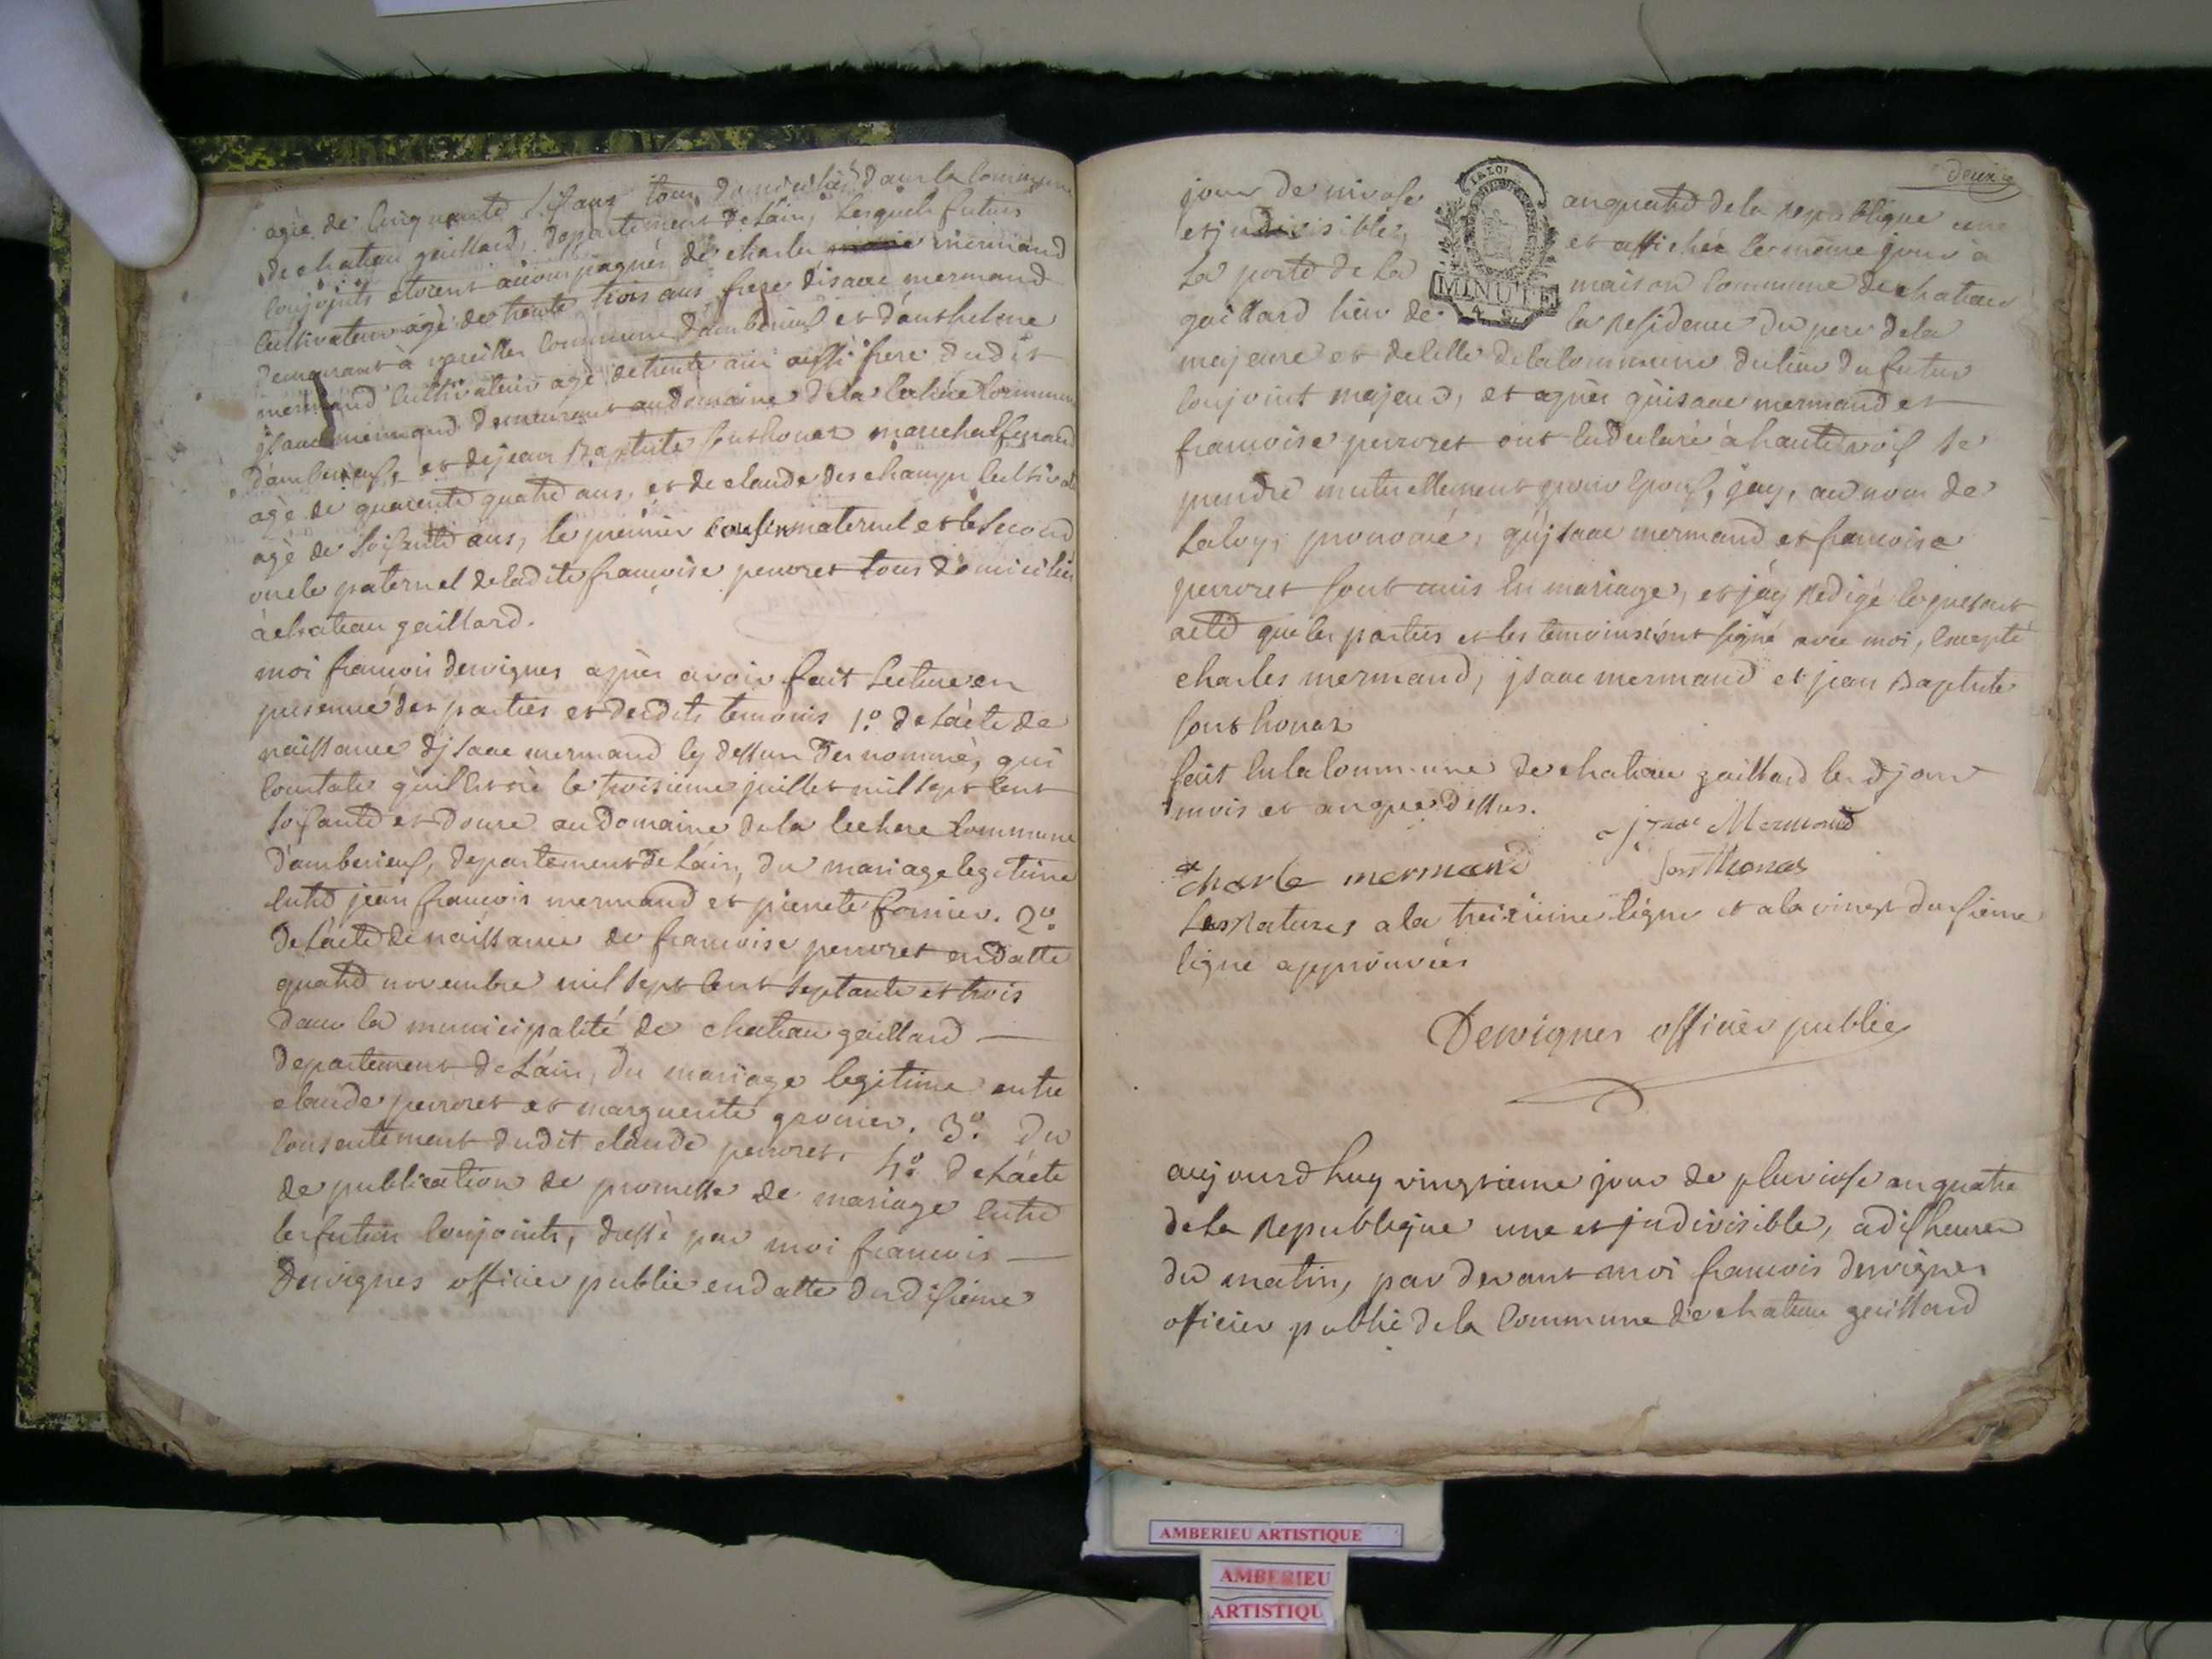 agée de cinquante six ans tous domiciliés dans la commune
de chateau gaillard, departement de Láin, lesquels futurs
conjoints etoient accompagnés de charles mermand
cultivateur agé de trente trois ans, frere disaac mermand
demeurant à vareilles commune dambérieux et dánthelme
mermand cultivateur agé de trente ans aussi frere dudit
jsaac mermand demeurant au domaine de la lechere commune
dambérieux, et de jean Baptiste sonthonax marechal ferrand
agé de quarente quatre ans, et de claude deschamps cultivat
agé de soixante ans, le premier cousin maternel et le second
oncle paternel de ladite françoise perroret tous domiciliés
à chateau gaillard.
moi françois dervignes après avoir fait lecture en
presence des parties et desdits temoins 1.º de Lácte de
naissance djsaac mermand cy dessus denommé, qui
constate qu'il est né le troisieme juillet mil sept cent
soixante et douze au domaine de la lechere commune
d'amberieux, departement de Láin, du mariage legitime
entre jean francois mermand et pierrete fornier. 2º
de Lácte de naissance de francoise perroret en datte
quatre novembre mil sept cent septante et trois
dans la municipalité de chateau gaillard —
departement de Láin, du mariage legitime entre
claude perroret et marguerite gronier. 3º. du
consentement dudit claude perroret. 4º. de Lácte
de publication de promesse de mariage entre
les futurs conjoints, dressé par moi francois —
Dervignes officier public en datte du dixieme
deux
jour de nivose an quatre de la republique une
et jndivisible, et affichée le même jour à
La porte de la maison commune de chateau
gaillard lieu de la residence du pere de la
majeure et de celle de la commune du lieu du futur
conjoint majeur, et après qu'isaac mermand et
françoise perroret ont eu declaré à haute voix se
prendre mutuellement pour epoux, jay, au nom de
La loy, prononcé, qu'jsaac mermand et francoise
perroret sont unis en mariage, et j'ay redigé le present
acte que les parties et les temoins ont signé avec moi, excepté
charles mermand, jsaac mermand et jean Baptiste
sonthonax
fait en la commune de chateau gaillard les d jour
mois et an que dessus.
jsaac Mermand
charle mermand sonthonax
Les ratures a la treizieme ligne et a la vingt deuxieme
ligne approuvées
Dervignes officier public
aujourdhuy vingtieme jour de pluviose an quatre
de la Republique une et jndivisible, a dix heures
du matin, par devant moi francois dervignes
officier public de la commune de chateau gaillard
MINUTE
AMBERIEU ARTISTIQUE
AMBERIEU
ARTISTIQU